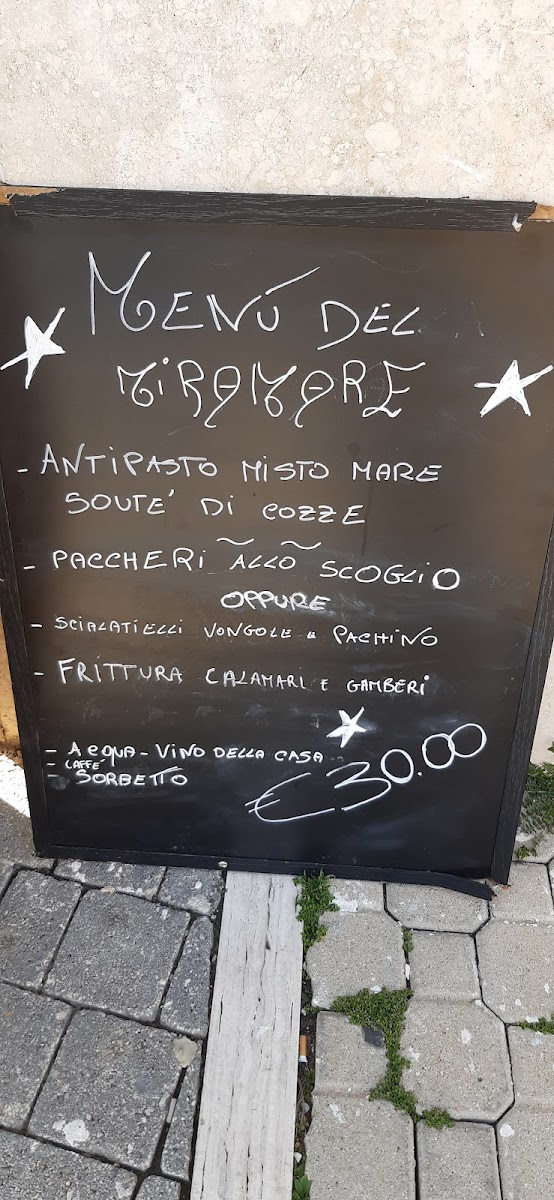 MENÚ DEL
MIRAMARE
- ANTIPASTO MISTO MARE
SOUTE' DI COZZE
- PACCHERI ALLO SCOGLIO
OPPURE
- SCIALATIELLI VONGOLE e PACHINO
- FRITTURA CALAMARI E GAMBERI
- ACQUA - VINO DELLA CASA
- CAFFE'
- SORBETTO
€ 30.00